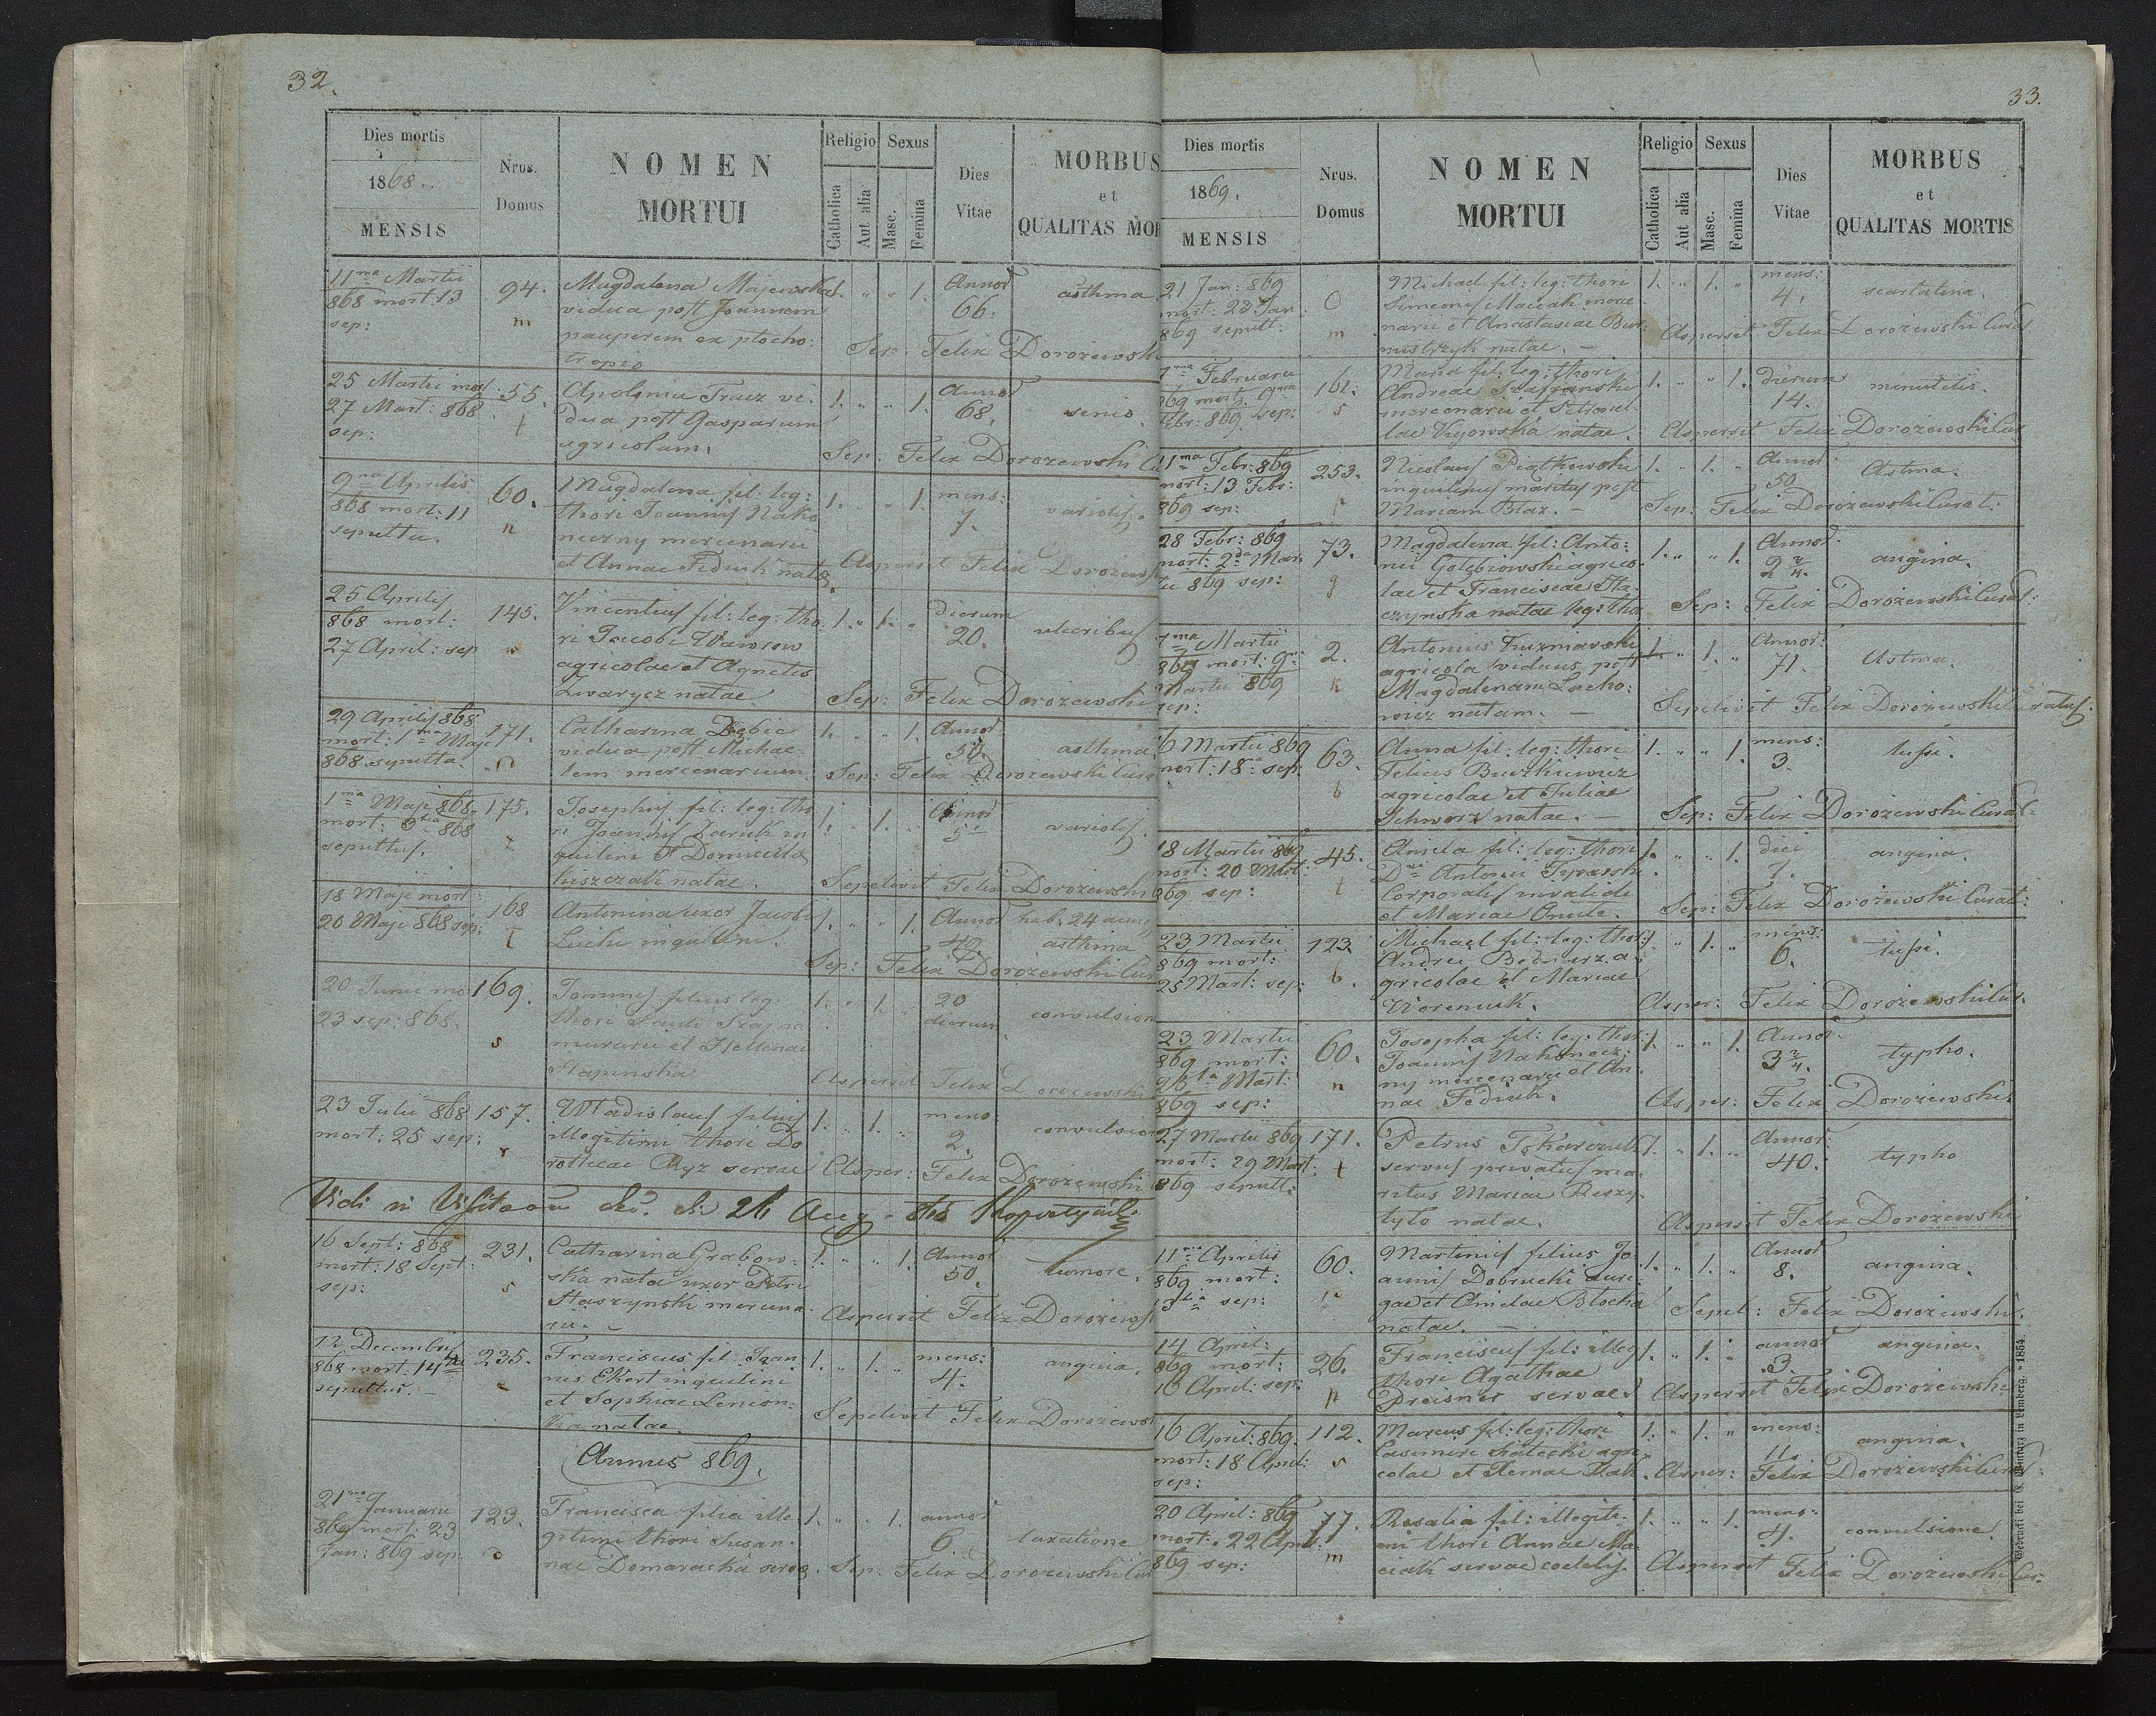 32.
Dies mortis
1868.
MENSIS
Nrus.
Domus
NOMEN
MORTUI
Religio
Catholica
Aut alia
Sexus
Masc.
Femina
Dies
Vitae
MORBUS
et
QUALITAS MOR
11ma Martii
868 mort. 13
sep:
94.
m
Magdalena Majewska
vidua post Joannem
pauperem ex ptocho:
tropio
1. " " 1.
Annor
66.
asthma
Sep: Felix Dorożewski
25 Martii mort
27 Mart: 868
sep:
55.
t
Apolonia Fracz vi
dua post Gasparum
agricolam.
1. " " 1.
Annor
68.
senio
Sep: Felix Dorożewski Cu
9na Aprilis
868 mort: 11
sepulta.
60.
n
Magdalena fil: leg:
thori Joannis Nako
neczny mercenarii
et Annae Fediuk nata
1. " " 1.
mens:
7.
variolis.
Aspersit Felix Dorożews
25 Aprilis
868 mort:
27 April: sep
145.
Vincentius fil: leg: tho
ri Jacobi Wawrow
agricolae et Agnetis
Zwarycz natae
1. " 1. "
dierum
20.
ulceribus
Sep: Felix Dorożewski
29 Aprilis 868
mort: 1ma Maji
868 sepulta.
171.
Catharina Dębic
vidua post Michae
lem mercenarium
1. " " 1.
Annor
50.
asthma
Sep: Felix Dorożewski Cura
1ma Maji 868
mort: 3tia 868
sepultus.
175.
Josephus fil: leg: tho
ri Joannis Zaruk in
quilini et Domicella
kiszczak natae.
1. " 1. "
Annor
5
variolis.
Sepelivit Felix Dorożewski
18 Maji mort
20 Maji 868 sep:
168
t
Antonina uxor Jacobi
Luchi inquilini.
1. " " 1.
Annor
40.
hab. 24 ann
asthma
Sep: Felix Dorożewski Cur
20 Junii mo
23 sep: 868.
169.
s
Joannes filius leg:
thori Pauli Szajna
murarii et Hellenae
Stapinska
1. " 1. "
20
dierum
convulsion
Aspersit Felix Dorożewski
23 Julii 868
mort: 25 sep:
157.
r
Wladislaus filius
illegitimi thori Do
rotheae Ryz servae
1. " 1. "
mens
2.
convulsion
Asper: Felix Dorożewski
Vidi in
26 Aug
16 Sept: 868
mort: 18 Sept:
sep:
231.
s
Catharina Grabow:
ska nata uxor Petri
Staszynski mercena
rii.
1. " " 1.
Annor
50.
tumore.
Aspersit Felix Dorożews
12 Decembris
868 mort 14ta
sepultus.
235.
Franciscus fil: Joan
nis Ekert inquilini
et Sophiae Lenion:
ka natae.
1. " 1. "
mens:
4.
angina.
Sepelivit Felix Dorożews
Annus 869.
21ma Januarii
869 mort: 23
Jan: 869 sep.
123.
o
Francisca filia ille
gitimi thori Susan:
nae Domaracka servae.
1. " " 1.
annor
6.
laxatione
Sep: Felix Dorożewski Cur
33.
Dies mortis
1869.
MENSIS
Nrus.
Domus
NOMEN
MORTUI
Religio
Catholica
Aut alia
Sexus
Masc.
Femina
Dies
Vitae
MORBUS
et
QUALITAS MORTIS
21 Jan: 869
mort: 23 Jan
869 sepult:
m
Michael fil: leg: thori
Simeonis Maciak merce
narii et Anastasiae Bur:
mistrzyk natae.
1. " 1. "
mens:
4.
scarlatina.
Aspersit Felix Dorożewski Curat
7ma Februarii
869 mort: 9na
Febr: 869 sep:
161.
s
Maria fil: leg: thori
Andreae Szafranski
mercenarii et Petronel
lae Kijowska natae.
1. " " 1.
dierum
14.
Aspersit Felix Dorożewski Cur
11ma Febr: 869
mort: 13 Febr:
869 sep:
253.
Nicolaus Piątkowski
inquilinus maritus post
Mariam Błaz.
1. " 1. "
Annor
50
Astma.
Sep: Felix Dorożewski Curat:
28 Febr: 869
mort: 2da Mar
tii 869 sep:
73.
g
Magdalena fil: Anto:
nii Golębiowski agrico
lae et Franciscae Sta
czynska natae leg: tho
1. " " 1.
Annor
2 2/4.
angina.
Sep: Felix Dorożewski Curat:
7ma Martii
869 mort: 9na
Martii 869
sep:
2.
k
Antonius Kuzniarski
agricola viduus post
Magdalenam Lacho:
wicz natam.
1. " 1. "
Annor:
71.
Astma.
Sepelivit Felix Dorożewski Curatus.
16 Martii 869
mort: 18a sep.
63.
b
Anna fil: leg: thori
Felicis Buczkiewicz
agricolae et Juliae
Schworz natae.
1. " " 1.
mens:
3.
tussi.
Sep: Felix Dorożewski Curat:
18 Martii 869
mort: 20 Mart:
869 sep:
45.
t
Aniela fil: leg: thori
Dni Antonii Tyrawski
Corporalis invalidi
et Mariae Onute.
1. " " 1.
diei
1.
angina.
Sep: Felix Dorożewski Curat:
23 Martii
869 mort:
25 Mart: sep:
123.
b.
Michael fil: leg: thori
Andrei Bednarz a
gricolae et Mariae
Woreniuk.
1. " 1. "
mens:
6.
tussi.
Asper: Felix Dorożewski Cur.
23 Martii
869 mort:
25ta Mart:
869 sep:
60.
n
Josepha fil: leg: thori
Joannis Nakonecz:
ny mercenarii et An:
nae Fediuk.
1. " " 1.
Annor
3 2/4.
typho.
Asper: Felix Dorożewski.
27 Martii 869
mort: 29 Mart:
869 sepult:
171.
t
Petrus Tokarczuk
servus privatus ma
ritus Mariae Reszy
tyło natae.
1. " 1. "
Annor:
40.
typho
Aspersit Felix Dorożewski
11ma Aprilis
869 mort:
13tia sep:
60.
Martinus filius Jo
annis Dobrucki auri:
gae et Anielae Błocka
natae.
1. " 1. "
Annor
8.
angina.
Sepel: Felix Dorożewski.
14 April:
869 mort:
16 April: sep:
26.
p
Franciscus fil: illeg
thori Agathae
Preisner servae
1. " 1. "
annor
3.
angina.
Aspersit Felix Dorożewski
16 April: 869.
mort: 18 April:
sep:
112.
s
Marcus fil: leg: thori
Casimiri Białecki agri
colae et Xeniae Hak.
1. " 1. "
mens:
11.
angina.
Asper: Felix Dorożewski Curat
20 April: 869
mort: 22 April:
869 sep:
77.
m
Rosalia fil: illegiti:
mi thori Annae Ma
ciak servae coelebis.
1. " " 1.
mens:
4.
convulsione.
Aspersit Felix Dorożewski Cur:
Gedruckt bei E. Winiarz in Lemberg. 1854.